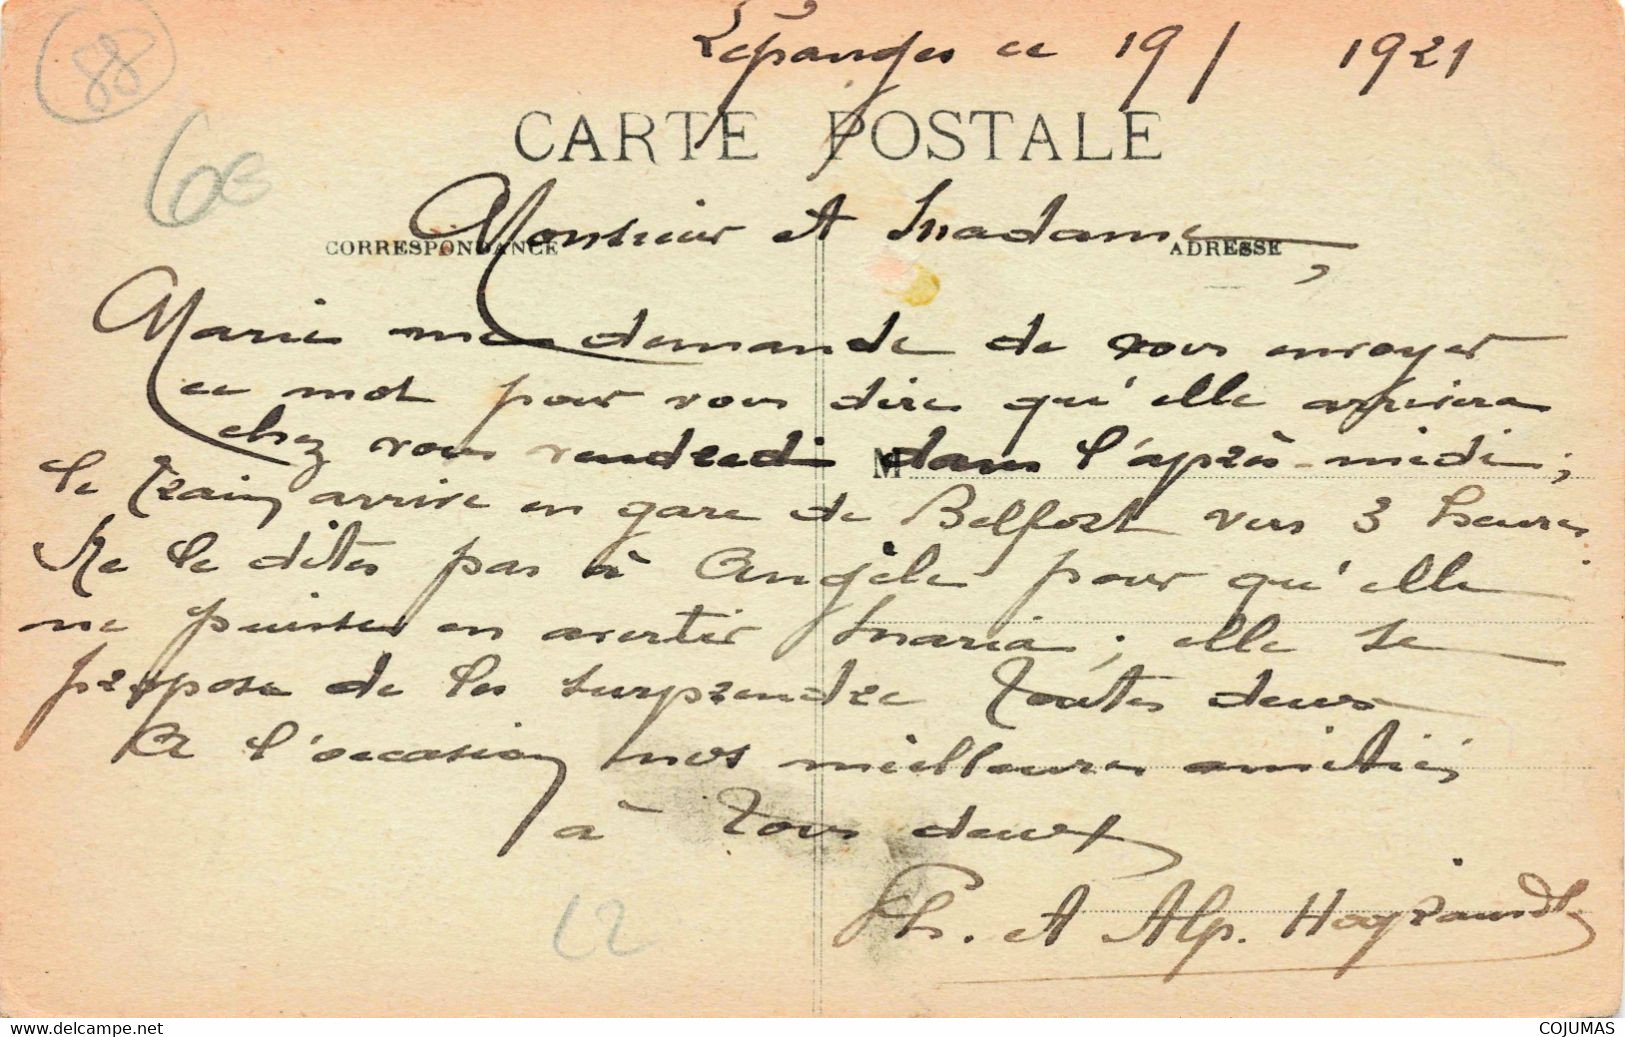 88
Lépanges ce 19/ 1921
6€
CARTE POSTALE
Monsieur et Madame,
CORRESPONDANCE
ADRESSE
Marie me demande de vous envoyer
ce mot pour vous dire qu'elle arrivera
chez vous vendredi dans l'après-midi;
M
le train arrive en gare de Belfort vers 3 heures
Ne le dites pas à Angèle pour qu'elle
ne puisse en avertir Maria; elle se
propose de les surprendre toutes deux
A l'occasion nos meilleures amitiés
à tous deux
L2
Ph. et Alp.
COJUMAS